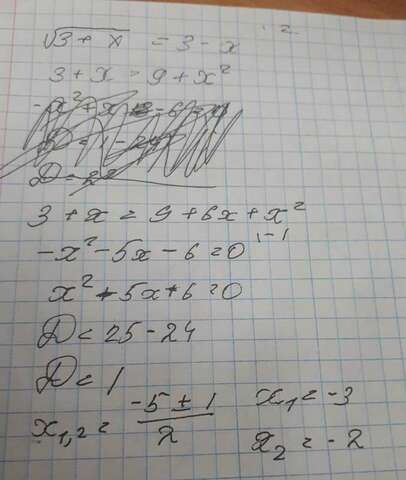 √3 + x = 3 - x
3 + x = 9 + x²
3 + x = 9 + 6x + x²
-x² - 5x - 6 = 0 | -1
x² + 5x + 6 = 0
D = 25 - 24
D = 1
x₁,₂ = (-5 ± 1)/2
x₁ = -3
x₂ = -2